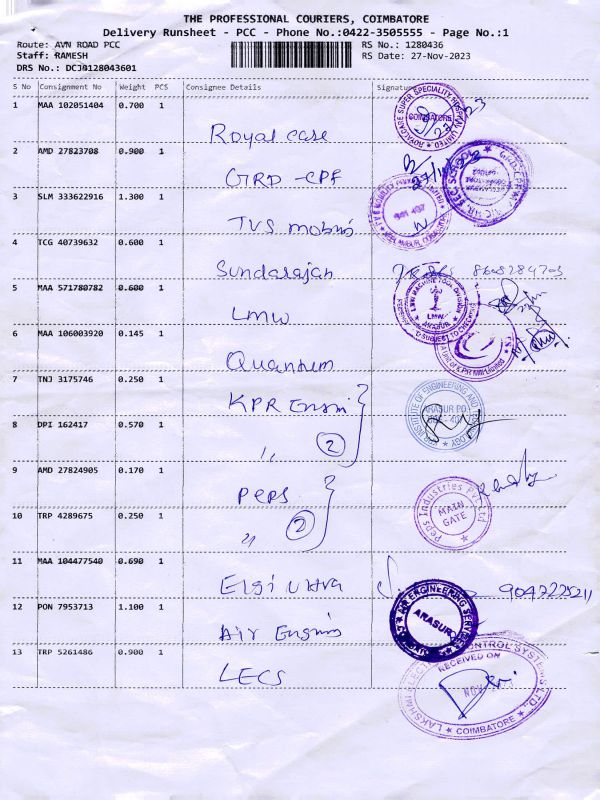 THE PROFESSIONAL COURIERS, COIMBATORE
Delivery Runsheet - PCC - Phone No.:0422-3505555 - Page No.:1
Route: AVN ROAD PCC RS No.: 1280436
Staff: RAMESH RS Date: 27-Nov-2023
DRS No.: DCJ4128043601
S No Consignment No Weight PCS Consignee Details Signature
1 MAA 102051404 0.700 1 Royal case
2 AMD 27823708 0.900 1 GRD - CPF
3 SLM 333622916 1.300 1 TVS
4 TCG 40739632 0.600 1 Sundarajan
5 MAA 571780782 0.600 1 LMW
6 MAA 106003920 0.145 1 Quantum
7 TNJ 3175746 0.250 1 KPR
8 DPI 162417 0.570 1 ,, 2
9 AMD 27824905 0.170 1 Peps
10 TRP 4289675 0.250 1 ,, 2
11 MAA 104477540 0.690 1 Elgi ultra
12 PON 7953713 1.100 1 Air
13 TRP 5261486 0.900 1 LECS
COIMBATORE
LMW MACHINE TOOL DIVISION
LMW
ARASUR
A Unit of KPR Mill Limited
INSTITUTE OF ENGINEERING AND
ARASUR PO.
Peps Industries Pvt Ltd
MAIN
GATE
AIR ENGINEERING SERVICES
ARASUR
CONTROL SYSTEMS LTD.,
RECEIVED ON
NOV
COIMBATORE